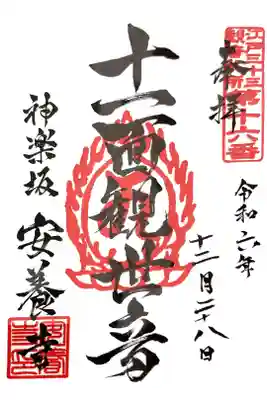 江戸三十三
観音札所第十六番
奉拝
令和六年
十二月二十八日
十一面観世音
神楽坂
安養寺